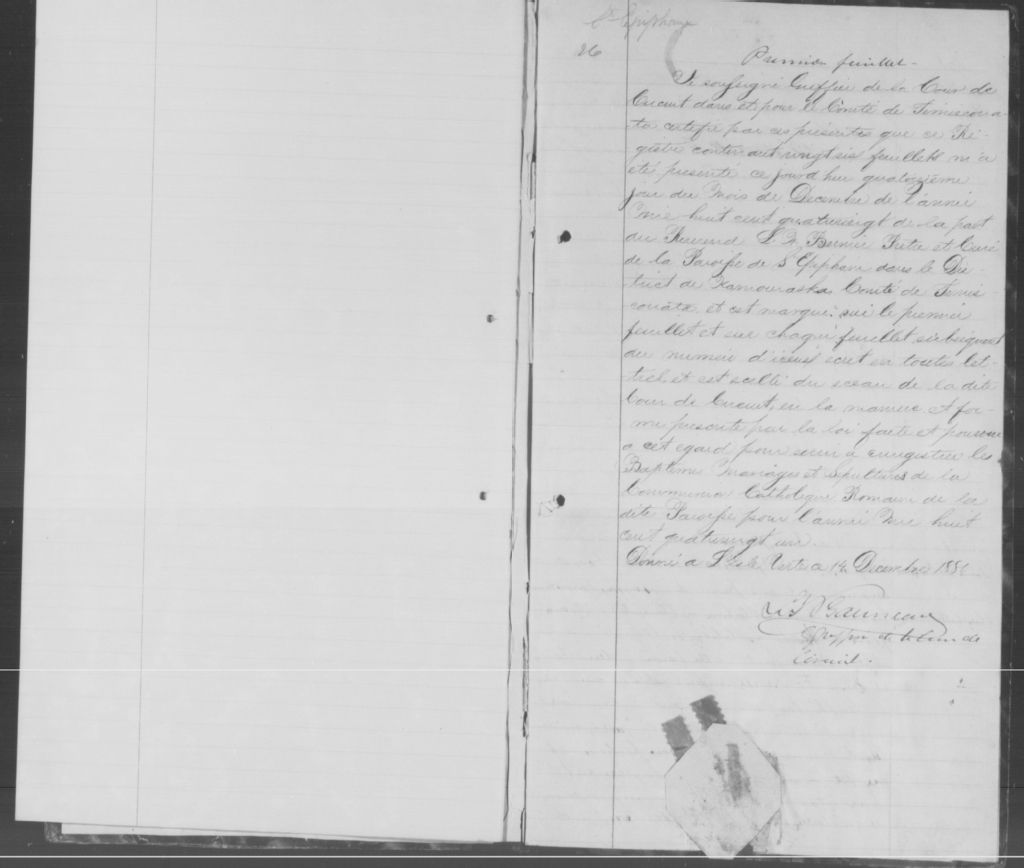 St Epiphane
26
Premier feuillet -
Je soussigné Greffier de la Cour de
Circuit dans et pour le Comté de Temiscoua-
ta certifie par ces présentes que ce Ré-
gistre contenant vingt six feuillets m'a
été présenté ce jourd'hui quatorzième
jour du Mois de Decembre de l'année
Mil huit cent quatrevingt de la part
du Reverend Bernier Prêtre et Curé
de la Paroisse de St Epiphane dans le Dis-
trict de Kamouraska Comté de Temis-
couata, et est marqué sur le premier
feuillet et sur chaque feuillet subséquent
du numéro d'iceux écrit en toutes let-
tres et est scellé du sceau de la dite
Cour de Circuit, en la manière et for-
me prescrite par la loi faite et pourvue
a cet egard pour servir a enregistrer les
Baptêmes Mariages et sépultures de la
Communion Catholique Romaine de la
dite Paroisse pour l'année Mil huit
cent quatrevingt un.
Donné a L'Isle Verte a 14 Decembre 1880
Greffier de la Cour de
Circuit.